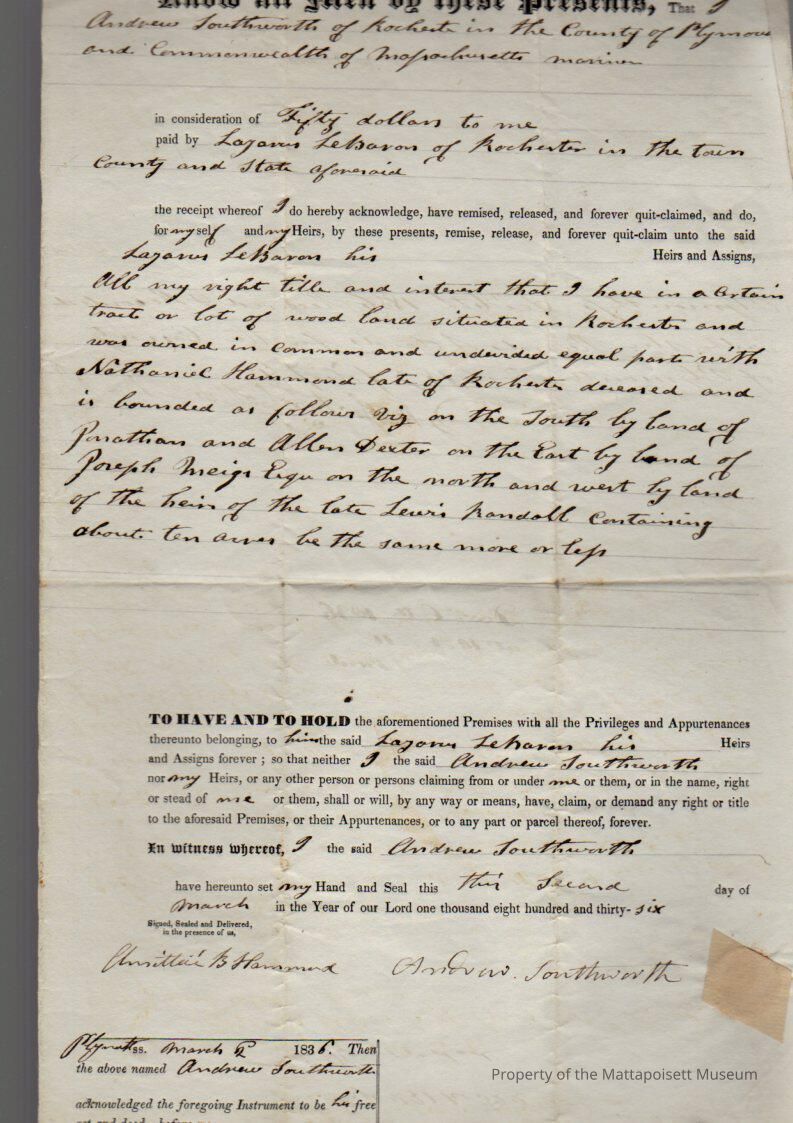 Know all Men by these Presents, That I
Andrew Southworth of Rochester in the County of Plymouth
and Commonwealth of Massachusetts mariner
in consideration of Fifty dollars to me
paid by Lazarus LeBaron of Rochester in the town
County and State aforesaid
the receipt whereof I do hereby acknowledge, have remised, released, and forever quit-claimed, and do,
for myself and my Heirs, by these presents, remise, release, and forever quit-claim unto the said
Lazarus LeBaron his Heirs and Assigns,
All my right title and interest that I have in a certain
tract or lot of wood land situated in Rochester and
was owned in common and undivided equal parts with
Nathaniel Hammond late of Rochester deceased and
is bounded as follows viz on the South by land of
Jonathan and Allen Dexter on the East by land of
Joseph Meigs Esqu on the north and west by land
of the heirs of the late Lewis Randall containing
about ten acres be the same more or less
TO HAVE AND TO HOLD the aforementioned Premises with all the Privileges and Appurtenances
thereunto belonging, to him the said Lazarus LeBaron his Heirs
and Assigns forever ; so that neither I the said Andrew Southworth
nor my Heirs, or any other person or persons claiming from or under me or them, or in the name, right
or stead of me or them, shall or will, by any way or means, have, claim, or demand any right or title
to the aforesaid Premises, or their Appurtenances, or to any part or parcel thereof, forever.
In witness whereof, I the said Andrew Southworth
have hereunto set my Hand and Seal this this Second day of
March in the Year of our Lord one thousand eight hundred and thirty-six
Signed, Sealed and Delivered,
in the presence of us,
B Hammond Andrew Southworth
Plymouth ss. March 2 1836. Then
the above named Andrew Southworth
acknowledged the foregoing Instrument to be his free
act and deed, before
Property of the Mattapoisett Museum